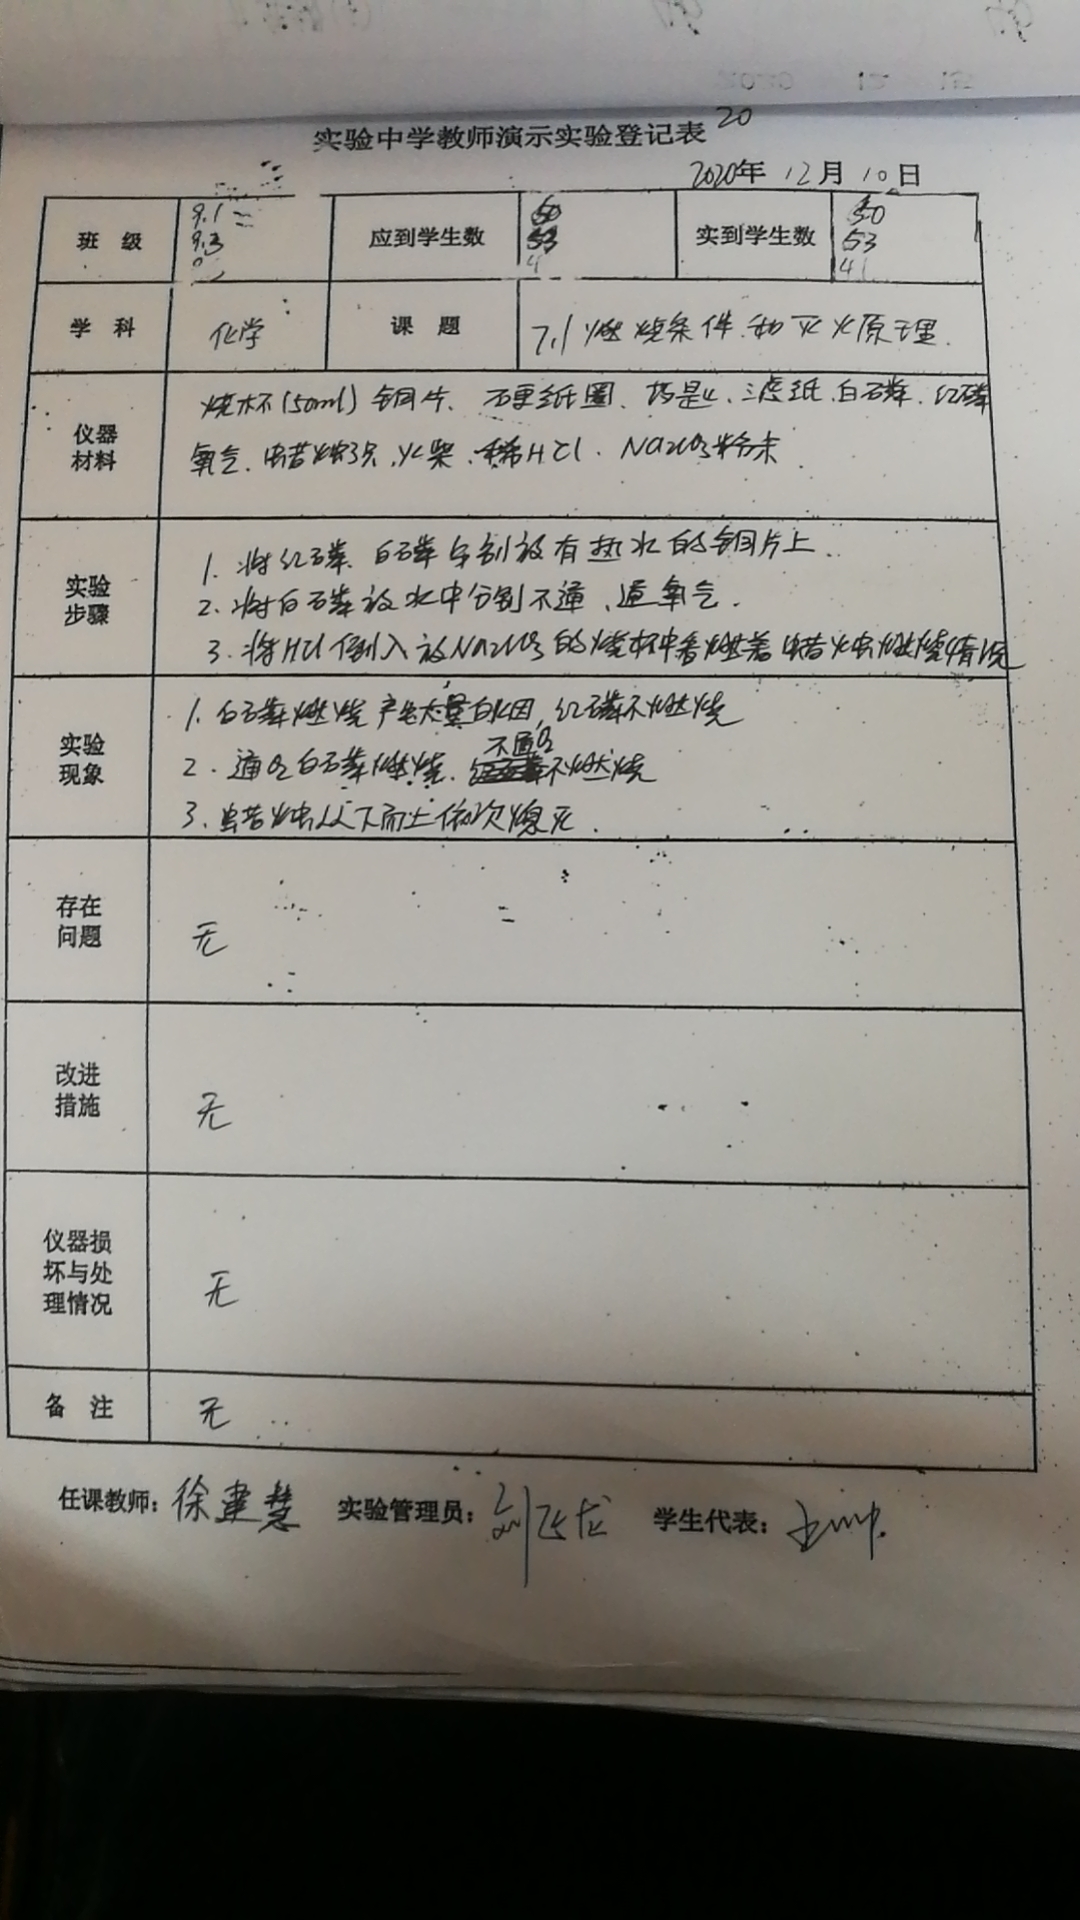 实验中学教师演示实验登记表 20
2020年 12月 10日
班 级 9.1 9.3 应到学生数 50 53 实到学生数 50 53 41
学 科 化学 课 题 7.1 燃烧条件和灭火原理.
仪器材料 烧杯(50ml) 铜片、硬纸圈、药匙、滤纸、白磷、红磷
氧气、蜡烛3只、火柴、稀HCl、Na2CO3粉末
实验步骤 1. 将红磷、白磷分别放有热水的铜片上.
2. 将白磷放水中分别不通、通氧气.
3. 将HCl倒入放Na2CO3的烧杯中看燃着蜡烛燃烧情况
实验现象 1. 白磷燃烧产生大量白烟,红磷不燃烧
2. 通O2白磷燃烧、不通O2不燃烧
3. 蜡烛从下而上依次熄灭.
存在问题 无
改进措施 无
仪器损坏与处理情况 无
备 注 无
任课教师: 徐建慧 实验管理员: 刘飞龙 学生代表: